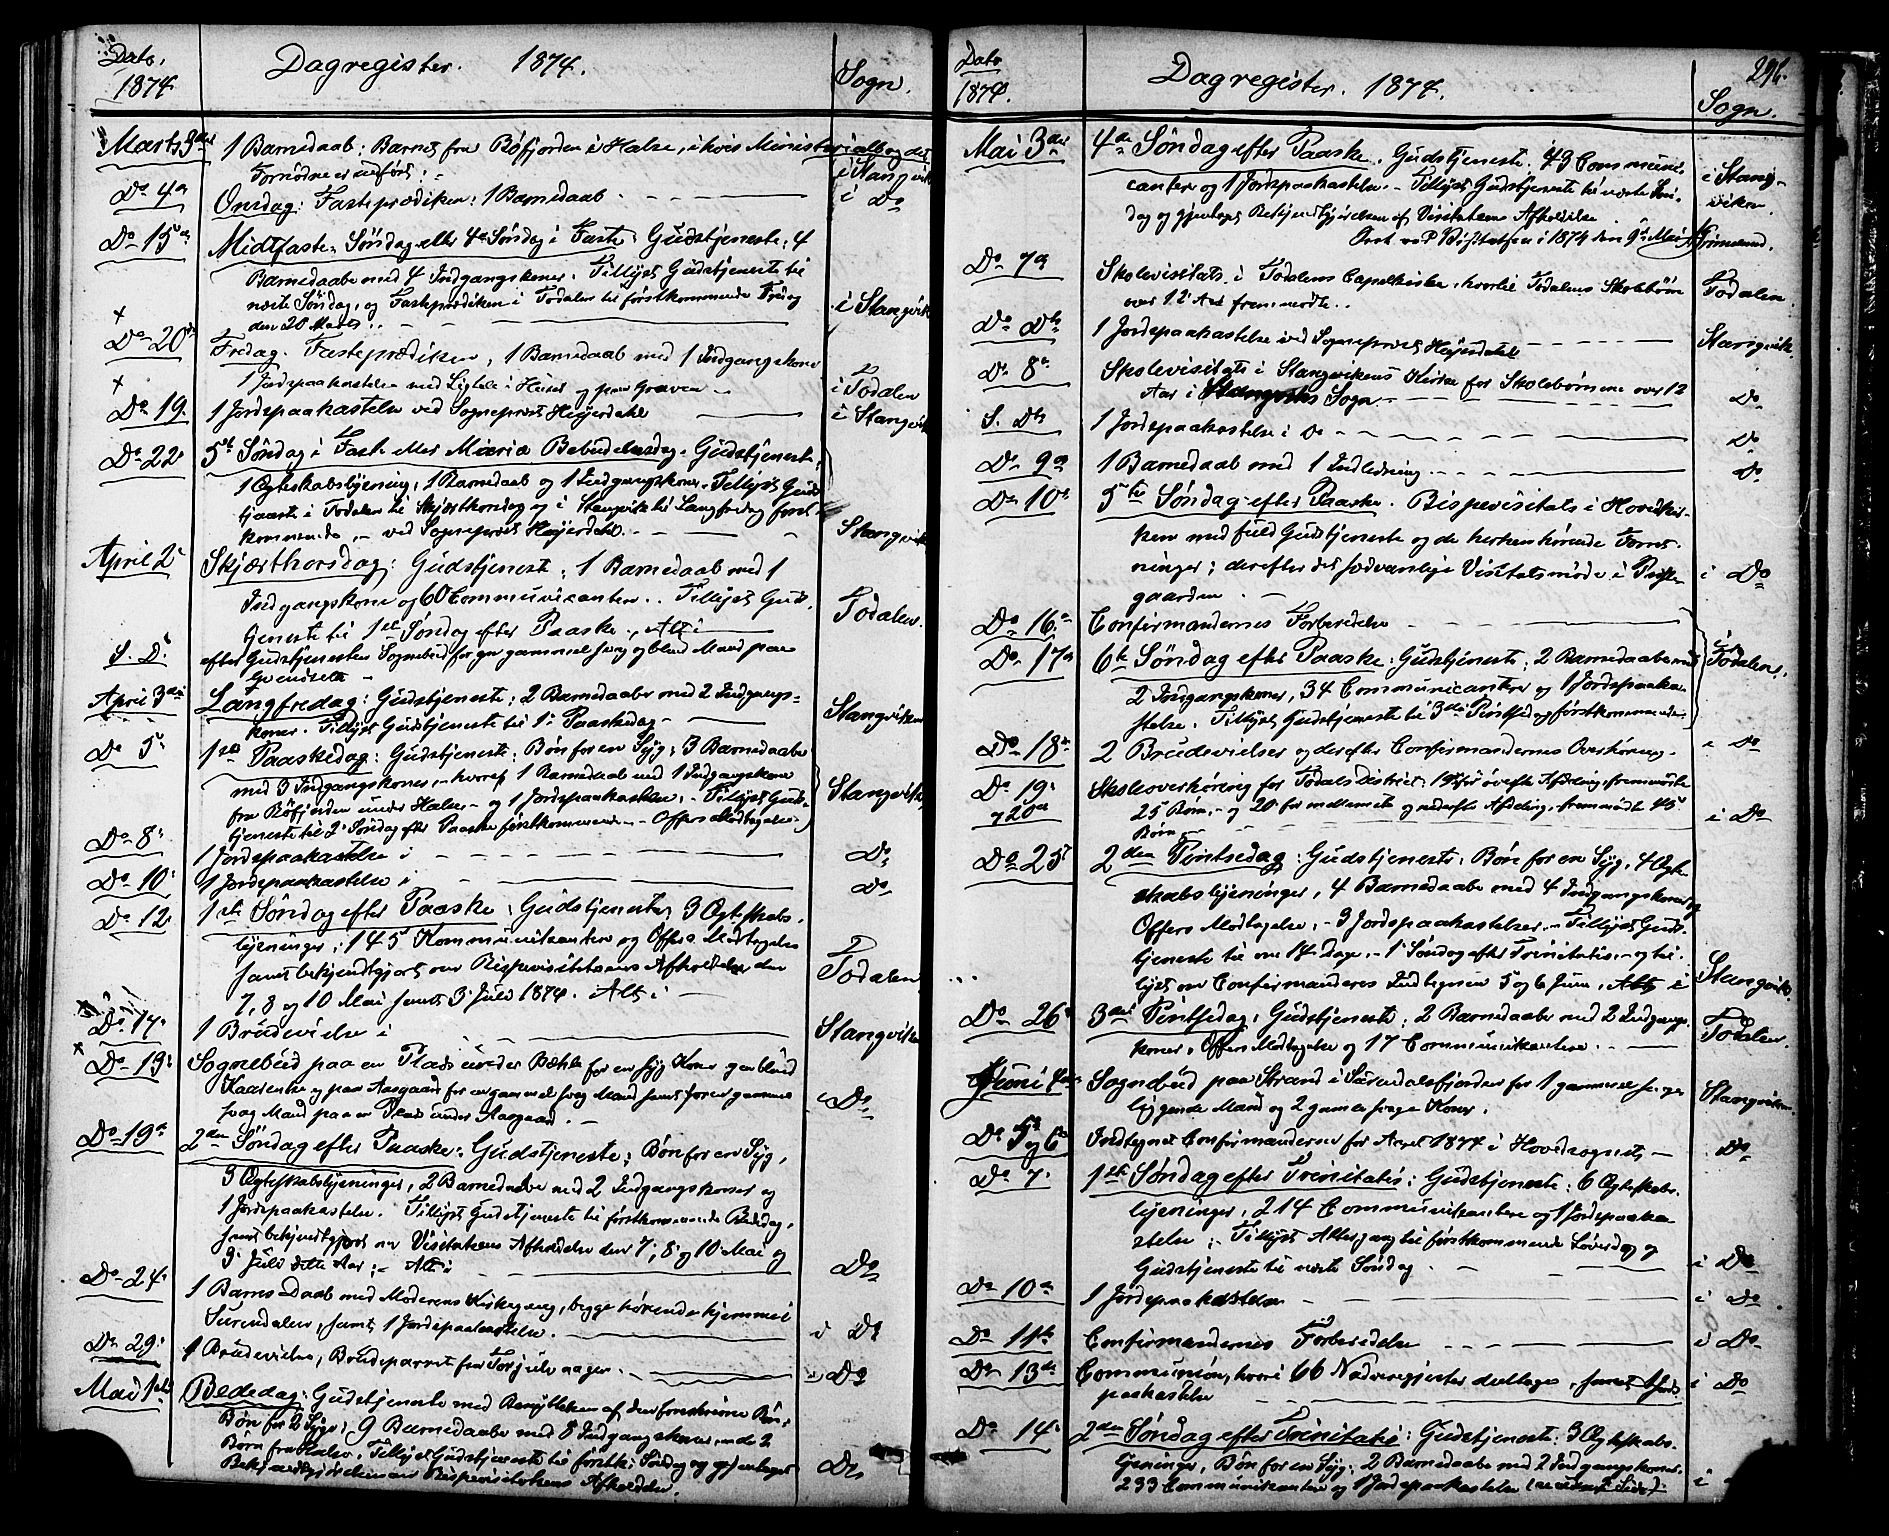 Dato.
1874
Dagregister. 1874.
Sogn.
Marts 3die
1 Barnedaab; Barnet fra Bøfjorden i Halse, i hvis Ministerialbog det
Fornødne er indført. -
i Stangvik
Do 4de
Onsdag: Fasteprædiken: 1 Barnedaab
i Do
Do 15de
Midtfaste-Søndag eller 4de Søndag i Faste: Gudstjeneste; 4
Barnedaabe med 4 Indgangskoner. Tillyst Gudstjeneste til
næste Søndag, og Fasteprædiken i Todalen til førstkommende Fredag
den 20 Marts.
i Stangvik
Do 20de
Fredag. Fasteprædiken, 1 Barnedaab med 1 Indgangskone
1 Jordspaakastelse med Ligtale i Huset og paa Graven -
i Todalen
Do 19.
1 Jordspaakastelse ved Sogneprest Heyerdahl
i Stangvik
Do 22
5te Søndag i Faste eller Mariæ Bebudelsesdag. Gudstjeneste,
1 Ægteskabslysning, 1 Barnedaab og 1 Indgangskone. Tillyst Guds
tjeneste i Todalen til Skjærthorsdag og i Stangvik til Langfredag først-
kommende - ved Sogneprest Heyerdahl.
Stangvik
April 2
Skjærthorsdag: Gudstjeneste; 1 Barnedaab med 1
Indgangskone og 60 Communicanter. Tillyst Guds-
tjeneste til 1ste Søndag efter Paaske. Alt i
Todalen.
S. D.
efter Gudstjenesten Sognebud for en gammel svag og blind Mand paa
April 3die
Langfredag: Gudstjeneste; 2 Barnedaabe med 2 Indgangs-
koner. Tillyst Gudstjeneste til 1ste Paaskedag -
Stangviken
Do 5
1ste Paaskedag: Gudstjeneste: Bøn for en Syg; 3 Barnedaabe
med 3 Indgangskoner, - hvoraf 1 Barnedaab med 1 Indgangskone
fra Bøfjorden under Halse - og 1 Jordspaakastelse. - Tillyst Guds-
tjeneste til 2 Søndag efter Paaske førstkommende - Offers Modtagelse
Stangvik
Do 8
1 Jordspaakastelse i
Do
Do 10
1 Jordspaakastelse i
Do
Do 12
1ste Søndag efter Paaske; Gudstjeneste; 3 Ægteskabs-
lysninger; 145 Kommunikanter og Offers Modtagelse
samt bekjendtgjort om Bispevisitatsens Afholdelse den
7, 8 og 10 Mai samt 3 Juli 1874. Alt i -
Todalen
Do 17
1 Brudevielse i
Stangviken
Do 19
Sognebud paa en Plads under Bække for en syg Kone og en blind
Do
Do 19de
2den Søndag efter Paaske: Gudstjeneste; Bøn for en Syg,
3 Ægteskabslysninger, 2 Barnedaabe med 2 Indgangskoner og
1 Jordspaakastelse. Tillyst Gudstjeneste til førstkommende Bededag,
samt bekjendtgjort om Visitatsens Afholdelse den 7, 8 og 10 Mai og
3 Juli dette Aar; - Alt i
Do
Do 24
1 Barnedaab med Moderens Kirkegang, begge hørende hjemme i
Surendalen, samt 1 Jordspaakastelse.
i Do
Do 29
1 Brudevielse, Brudeparret fra
i Do
Mai 1ste
Bededag: Gudstjeneste med Benyttelsen af den foreskrevne Bøn,
Bøn for 2 Syge; 9 Barnedaabe med 8 Indgangskoner,
Børn fra Halse. Tillyst Gudstjeneste til førstk. Søndag og gjentaget
Bekjendtgjørelsen om Bispevisitatsens Afholdelse.
Do
Dato
1874.
Dagregister. 1874.
296.
Sogn.
Mai 3die
4de Søndag efter Paaske. Gudstjeneste. 43 Communi-
canter og 1 Jordspaakastelse. Tillyst Gudstjeneste til næste Søn-
dag og gjentaget Bekjendtgjørelsen af Visitatsens Afholdelse.
i Stang-
viken.
Do 7de
Skolevisitats i Todalens Capelkirke, hvortil Todalens Skolebørn
over 12 Aar fremmødte.
Todalen.
Do Ds
1 Jordspaakastelse ved Sogneprest Heyerdahl
Stangvik.
Do 8de
Skolevisitats i Stangvikens Kirke for Skolebørnene over 12
Aar i Stangviks Sogn.
Do
S. Ds
1 Jordspaakastelse i Do
Do
Do 9de
1 Barnedaab med 1 Indledning.
Do
Do 10de
5te Søndag efter Paaske. Bispevisitats i Hovedkir-
ken med fuld Gudstjeneste og de herhenhørende Forret-
ninger; derefter det sædvanlige Visitatsmøde i Præste-
gaarden.
i Do
Do 16de
Confirmandernes Forberedelse
Do 17de
6te Søndag efter Paaske: Gudstjeneste; 2 Barnedaabe med
2 Indgangskoner, 34 Communicanter og 1 Jordspaaka-
stelse. Tillyst Gudstjeneste til 3die Pintsedag førstkommende
i Todalen.
Do 18de
2 Brudevielser og derefter Confirmandernes Overhøring
i Do
Do 19
og 20de
Skoleoverhøring for Todals District: 19 for øverste Afdeling, fremmødte
25 Børn, - og 20 for mellemste og nederste Afdeling, fremmødte 45
Børn
i Do
Do 25
2den Pintsedag: Gudstjeneste: Bøn for en Syg, 4 Ægte-
skabslysninger, 4 Barnedaabe med 4 Indgangskoner og
Offers Modtagelse, - 3 Jordspaakastelser. - Tillyst Guds-
tjeneste til om 14 Dage, - 1 Søndag efter Trinitatis, - og til-
lyst om Confirmanderes Indtegnen 5 og 6 Juni. Alt i
Stangvik.
Do 26
3die Pintsedag: Gudstjeneste; 2 Barnedaabe med 2 Indgangs-
koner, Offers Modtagelse og 17 Communikantere.
Todalen.
Juni
Sognebud paa Strand i Surendalsfjorden for 1 gammel senge-
liggende Mand og 2 gamle svage Koner.
Stangviken.
Do 5 og 6
Indtegnet Confirmanderne for Aaret 1874 i Hovedsognet -
Do
Do 7
1ste Søndag efter Trinitatis: Gudstjeneste: 6 Ægteskabs-
lysninger, 214 Communikantere og 1 Jordspaaka-
stelse; - Tillyst Altergang til førstkommende Løverdag og
Gudstjeneste til næste Søndag.
i Do
Do 10de
1 Jordspaakastelse
i Do
Do 11te
Confirmandernes Forberedelse
i Do
Do 13de
Communion, hvori 66 Nadvergjester deltoge, samt 1 Jords-
paakastelse
i Do
Do 14
2den Søndag efter Trinitatis: Gudstjeneste. 3 Ægteskabs-
lysninger, Bøn for en Syg; 2 Barnedaabe med 2 Indgangskoner.
233 Communikantere og 1 Jordspaakastelse
i